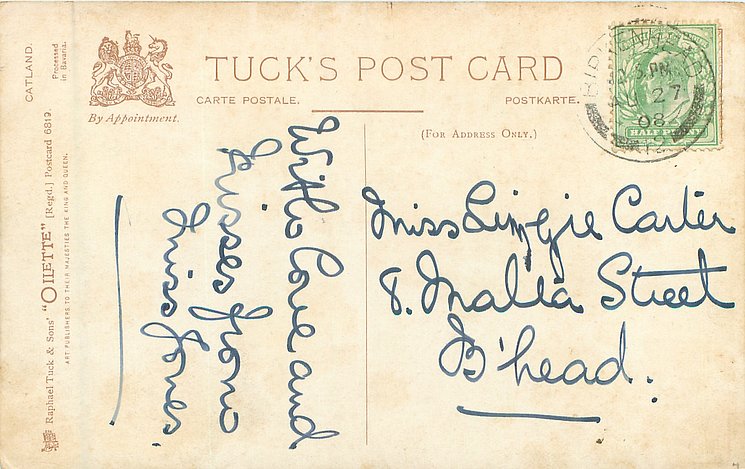 CATLAND.
Processed
in Bavaria.
Raphael Tuck & Sons' "OILETTE" [Regd.] Postcard 6819.
ART PUBLISHERS TO THEIR MAJESTIES THE KING AND QUEEN.
By Appointment.
TUCK'S POST CARD
CARTE POSTALE.
POSTKARTE.
(FOR ADDRESS ONLY.)
BIRKENHEAD
27
08
HALF PENNY
With Love and
Kisses from
Miss Jones.
Miss Lizzie Carter
8. Malta Street
B'head.